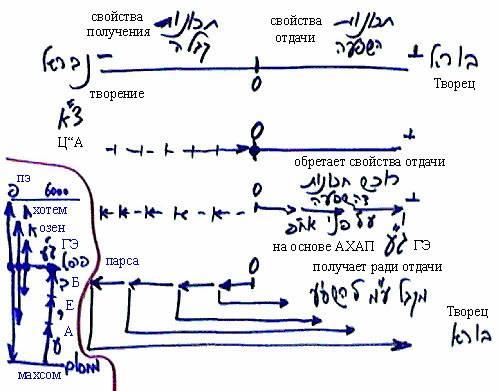 свойства
получения
תכונות
קבלה
свойства
отдачи
תכונות
השפעה
נברא
–
+
בורא
творение
0
Творец
צ"א
Ц“А
0
+
обретает свойства отдачи
רוכש תכונות
דהשפעה
על פני אח"פ
+
на основе АХАП
ג"ע
ГЭ
пэ
פ
6000
хотем
озен
ГЭ
ג"ע
פרסא
парса
0
получает ради отдачи
מקבל ע"מ להשפיע
Б
Е
А
ע
Творец
בורא
махсом
מחסום